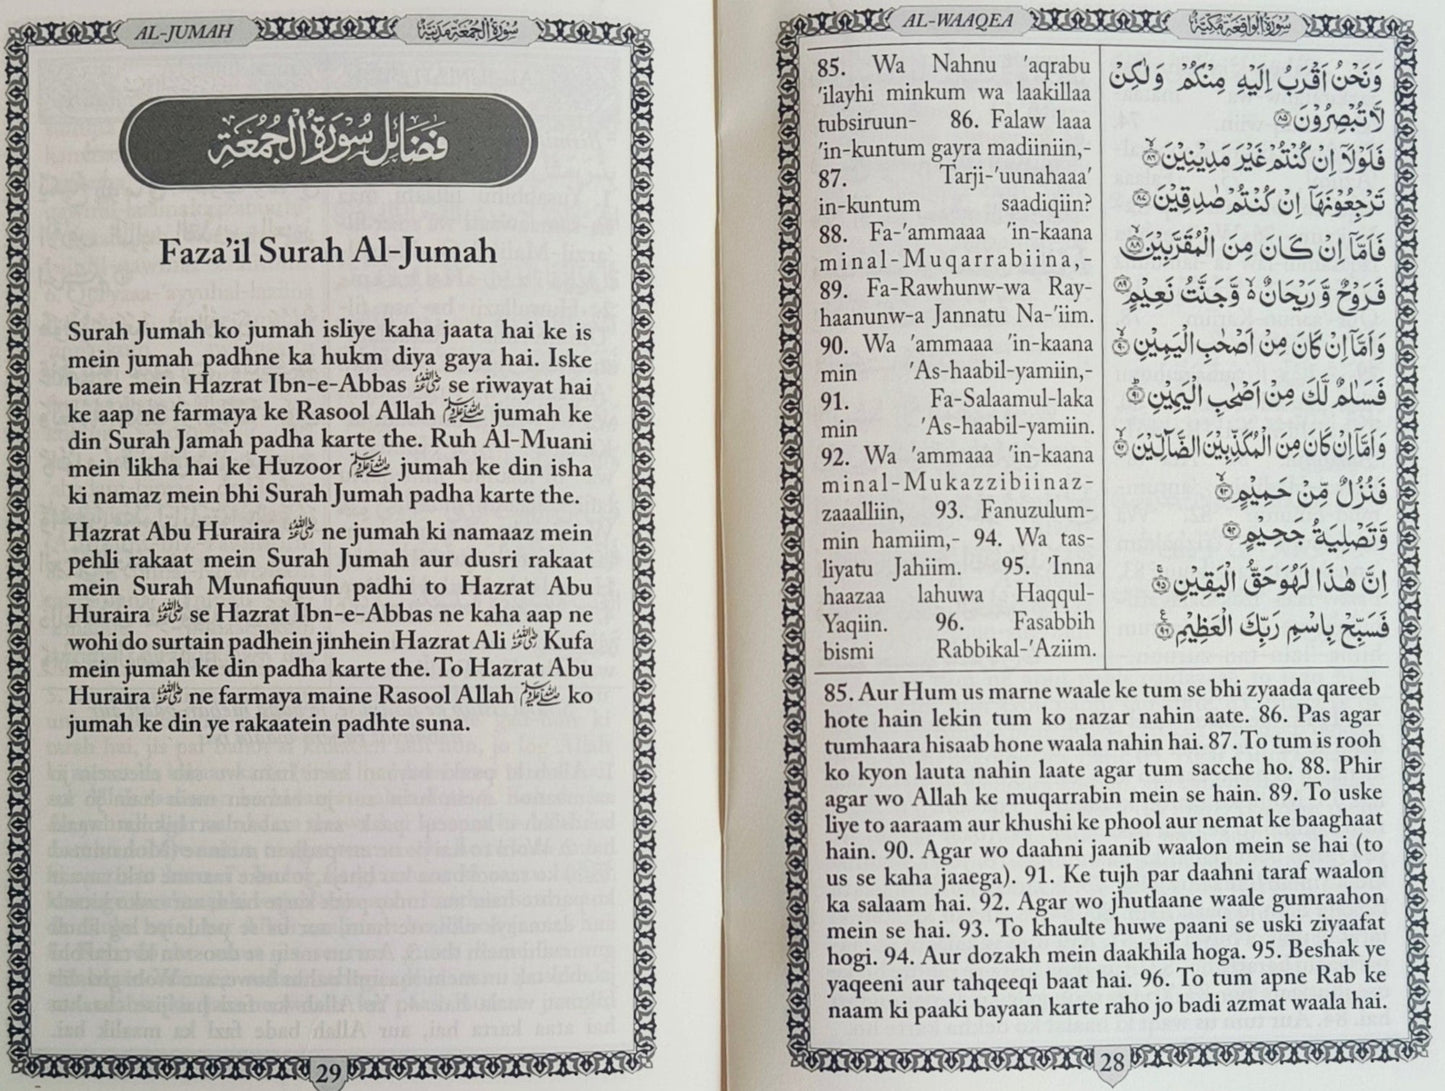 AL-WAAQEA
سُوْرَةُ الْوَاقِعَة مَكِّيَّة
85. Wa Nahnu 'aqrabu
'ilayhi minkum wa laakillaa
tubsiruun- 86. Falaw laaa
'in-kuntum gayra madiiniin,-
87. Tarji-'uunahaaa'
in-kuntum saadiqiin?
88. Fa-'ammaaa 'in-kaana
minal-Muqarrabiina,-
89. Fa-Rawhunw-wa Ray-
haanunw-a Jannatu Na-'iim.
90. Wa 'ammaaa 'in-kaana
min 'As-haabil-yamiin,-
91. Fa-Salaamul-laka
min 'As-haabil-yamiin.
92. Wa 'ammaaa 'in-kaana
minal-Mukazzibiinaz-
zaaalliin, 93. Fanuzulum-
min hamiim,- 94. Wa tas-
liyatu Jahiim. 95. 'Inna
haazaa lahuwa Haqqul-
Yaqiin. 96. Fasabbih
bismi Rabbikal-'Aziim.
وَنَحْنُ اَقْرَبُ اِلَيْهِ مِنْكُمْ وَلٰكِنْ
لَّا تُبْصِرُوْنَ ۝۸۵
فَلَوْلَاۤ اِنْ كُنْتُمْ غَيْرَ مَدِيْنِيْنَ ۝۸۶
تَرْجِعُوْنَهَاۤ اِنْ كُنْتُمْ صٰدِقِيْنَ ۝۸۷
فَاَمَّاۤ اِنْ كَانَ مِنَ الْمُقَرَّبِيْنَ ۝۸۸
فَرَوْحٌ وَّرَيْحَانٌ ۙ وَّجَنَّتُ نَعِيْمٍ ۝۸۹
وَاَمَّاۤ اِنْ كَانَ مِنْ اَصْحٰبِ الْيَمِيْنِ ۝۹۰
فَسَلٰمٌ لَّكَ مِنْ اَصْحٰبِ الْيَمِيْنِ ۝۹۱
وَاَمَّاۤ اِنْ كَانَ مِنَ الْمُكَذِّبِيْنَ الضَّآلِّيْنَ ۝۹۲
فَنُزُلٌ مِّنْ حَمِيْمٍ ۝۹۳
وَّتَصْلِيَةُ جَحِيْمٍ ۝۹۴
اِنَّ هٰذَا لَهُوَ حَقُّ الْيَقِيْنِ ۝۹۵
فَسَبِّحْ بِاسْمِ رَبِّكَ الْعَظِيْمِ ۝۹۶
85. Aur Hum us marne waale ke tum se bhi zyaada qareeb
hote hain lekin tum ko nazar nahin aate. 86. Pas agar
tumhaara hisaab hone waala nahin hai. 87. To tum is rooh
ko kyon lauta nahin laate agar tum sacche ho. 88. Phir
agar wo Allah ke muqarrabin mein se hain. 89. To uske
liye to aaraam aur khushi ke phool aur nemat ke baaghaat
hain. 90. Agar wo daahni jaanib waalon mein se hai (to
us se kaha jaaega). 91. Ke tujh par daahni taraf waalon
ka salaam hai. 92. Agar wo jhutlaane waale gumraahon
mein se hai. 93. To khaulte huwe paani se uski ziyaafat
hogi. 94. Aur dozakh mein daakhila hoga. 95. Beshak ye
yaqeeni aur tahqeeqi baat hai. 96. To tum apne Rab ke
naam ki paaki bayaan karte raho jo badi azmat waala hai.
28
AL-JUMAH
سُوْرَةُ الْجُمُعَة مَدَنِيَّة
فَضَائِل سُوْرَةُ الْجُمُعَةِ
Faza'il Surah Al-Jumah
Surah Jumah ko jumah isliye kaha jaata hai ke is
mein jumah padhne ka hukm diya gaya hai. Iske
baare mein Hazrat Ibn-e-Abbas رضی اللہ عنہ se riwayat hai
ke aap ne farmaya ke Rasool Allah ﷺ jumah ke
din Surah Jamah padha karte the. Ruh Al-Muani
mein likha hai ke Huzoor ﷺ jumah ke din isha
ki namaz mein bhi Surah Jumah padha karte the.
Hazrat Abu Huraira رضی اللہ عنہ ne jumah ki namaaz mein
pehli rakaat mein Surah Jumah aur dusri rakaat
mein Surah Munafiquun padhi to Hazrat Abu
Huraira رضی اللہ عنہ se Hazrat Ibn-e-Abbas ne kaha aap ne
wohi do surtain padhein jinhein Hazrat Ali رضی اللہ عنہ Kufa
mein jumah ke din padha karte the. To Hazrat Abu
Huraira رضی اللہ عنہ ne farmaya maine Rasool Allah ﷺ ko
jumah ke din ye rakaatein padhte suna.
29